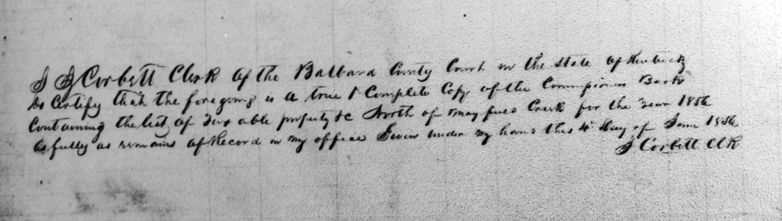 I J Corbett Clerk of the Ballard County Court in the State of Kentucky
do Certify that the foregoing is a true & Complete Copy of the Commissioners Book
Containing the list of Taxable property &c North of Mayfield Creek for the Year 1856
as fully as remains of Record in my office Given under my hand this 4th day of June 1856
J Corbett Clk